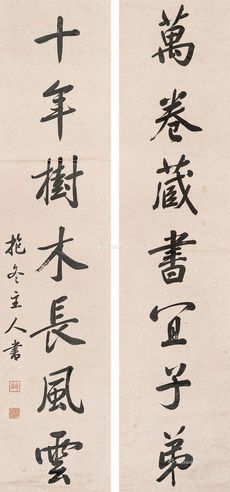 萬卷藏書宜子弟
十年樹木長風雲
抱冬主人書